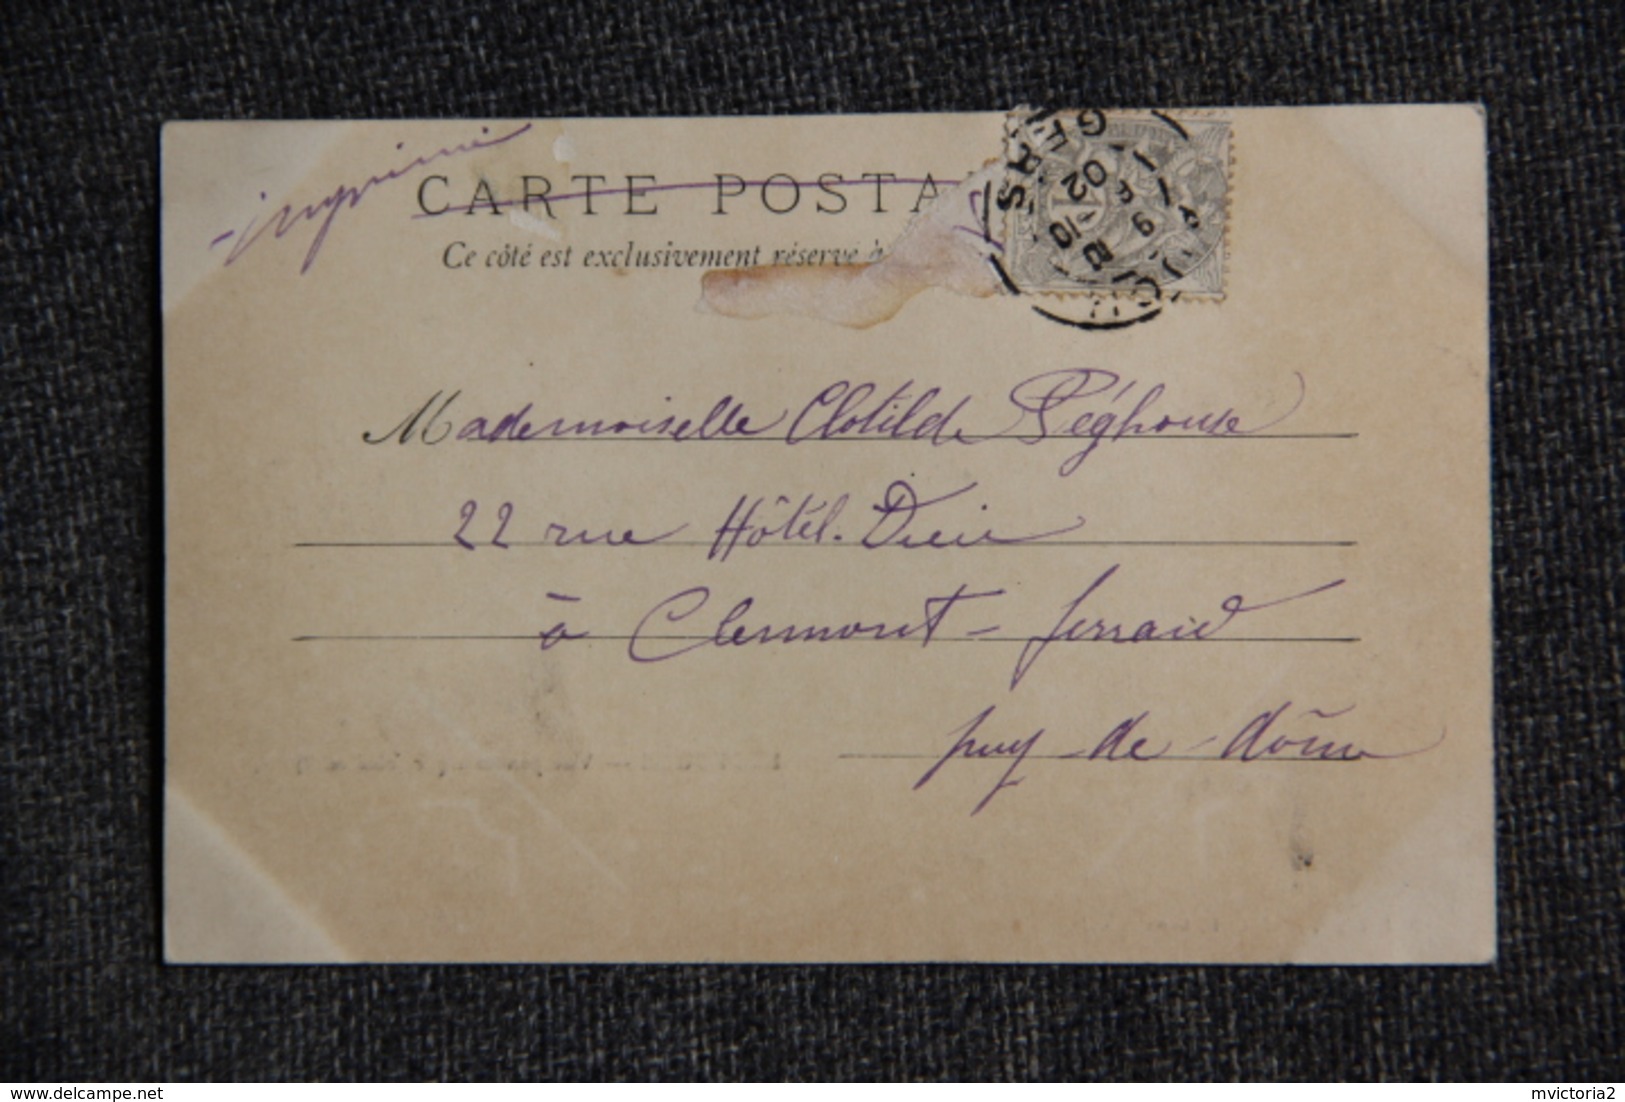 - imprimé
CARTE POSTA
Ce côté est exclusivement réservé à
Mademoiselle Clotilde Péghouse
22 rue Hôtel-Dieu
à Clermont-ferrand
puy-de-dôme
www.delcampe.net
mvictoria2